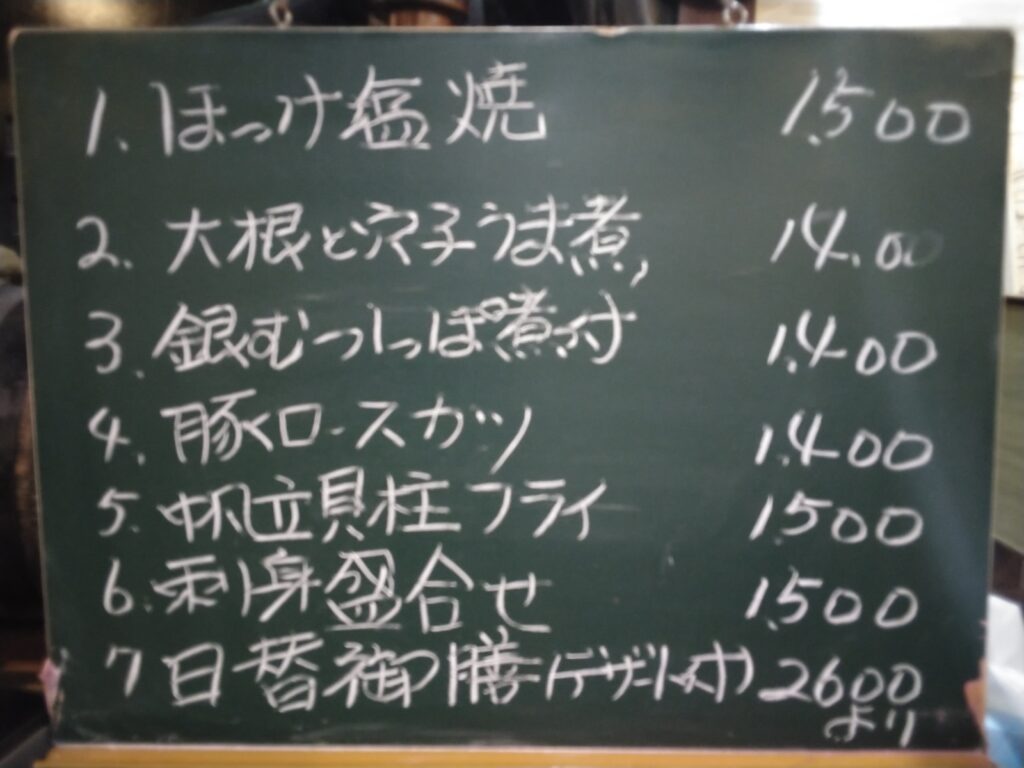 1. ほっけ塩焼 1.500
2. 大根と穴子うま煮 14.00
3. 銀むつしっぽ煮付 1.400
4. 豚ロースカツ 1.400
5. 帆立貝柱フライ 1500
6. 刺身盛合せ 1.500
7 日替御膳(デザート付) 2600
より